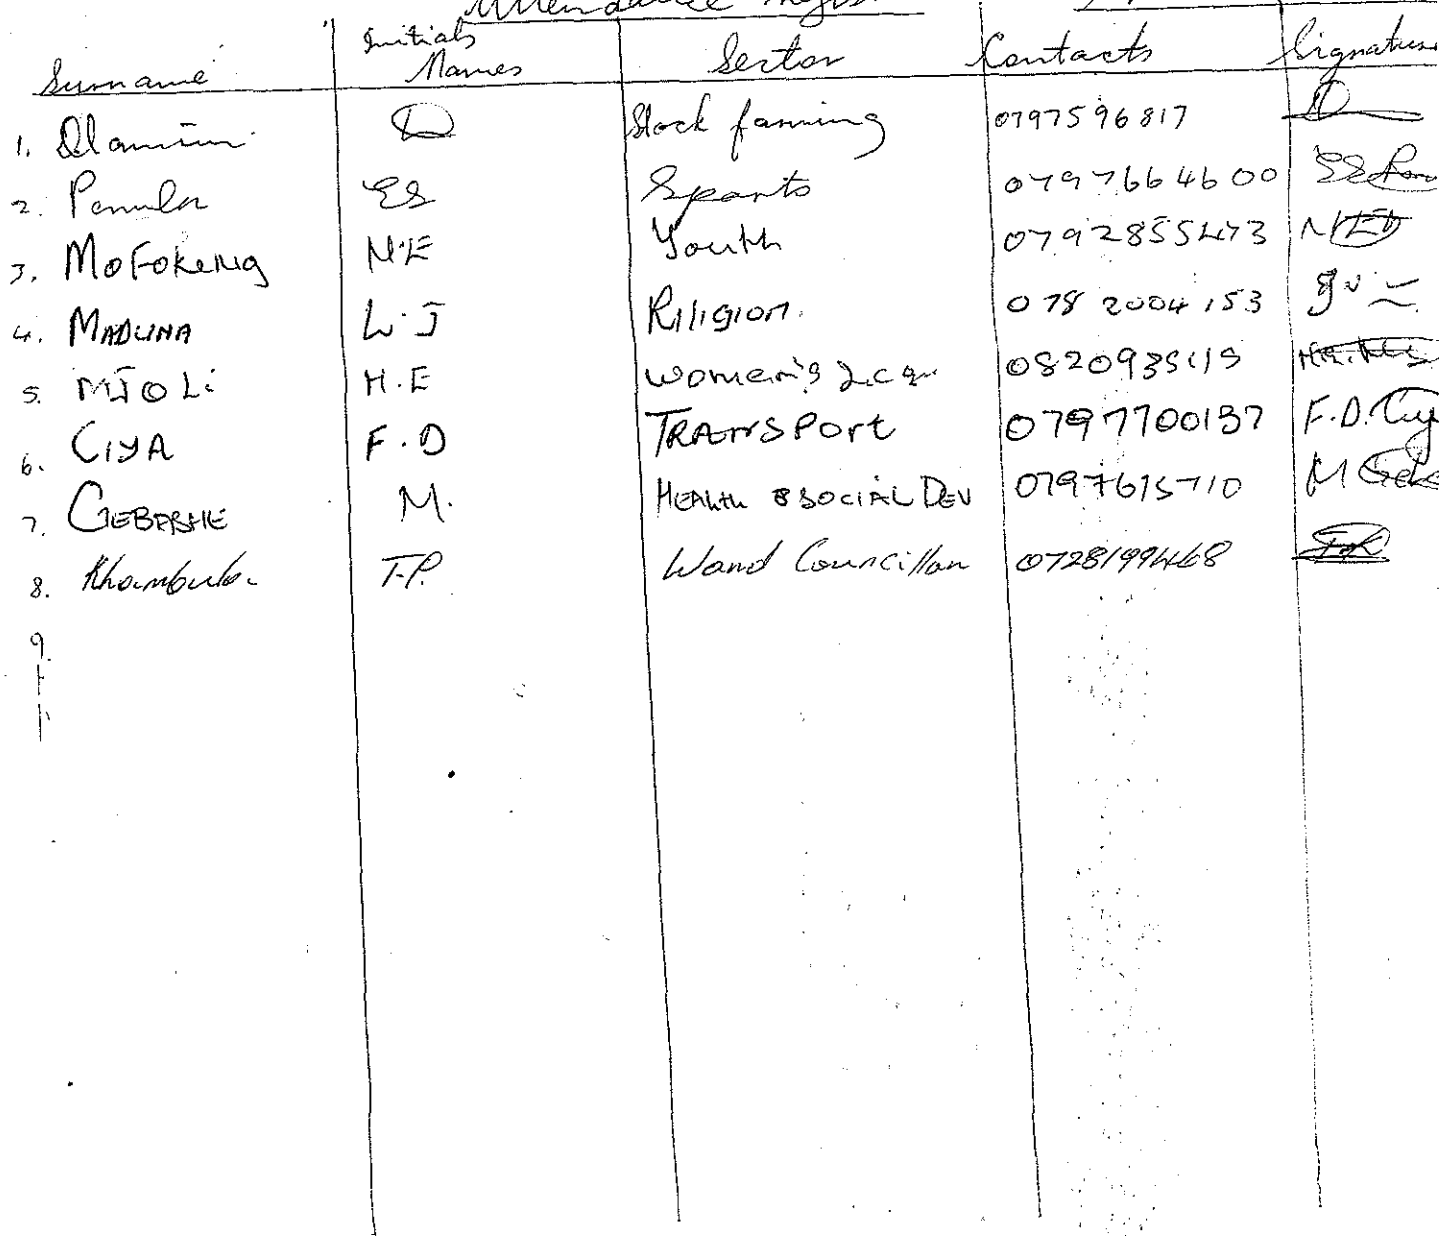 Attendance Regis
Surname Initials Names Sector Contacts Signature
1. Dlamini D Stock farming 0797596817 D
2. ES Sports 0797664600 ES
3. MoFokeng N.E Youth 0792855473
4. MADUNA L.J Riligion. 078 2004 153
5. MJOLi H.E women's
6. CIYA F.D TRANSPort 0797700137 F.D. Ciy
7. GEBASHE M. HEALTH & SOCIAL DEV 0797615710 M
8. Khambule T.P. Ward Councillor 0728199468
9.